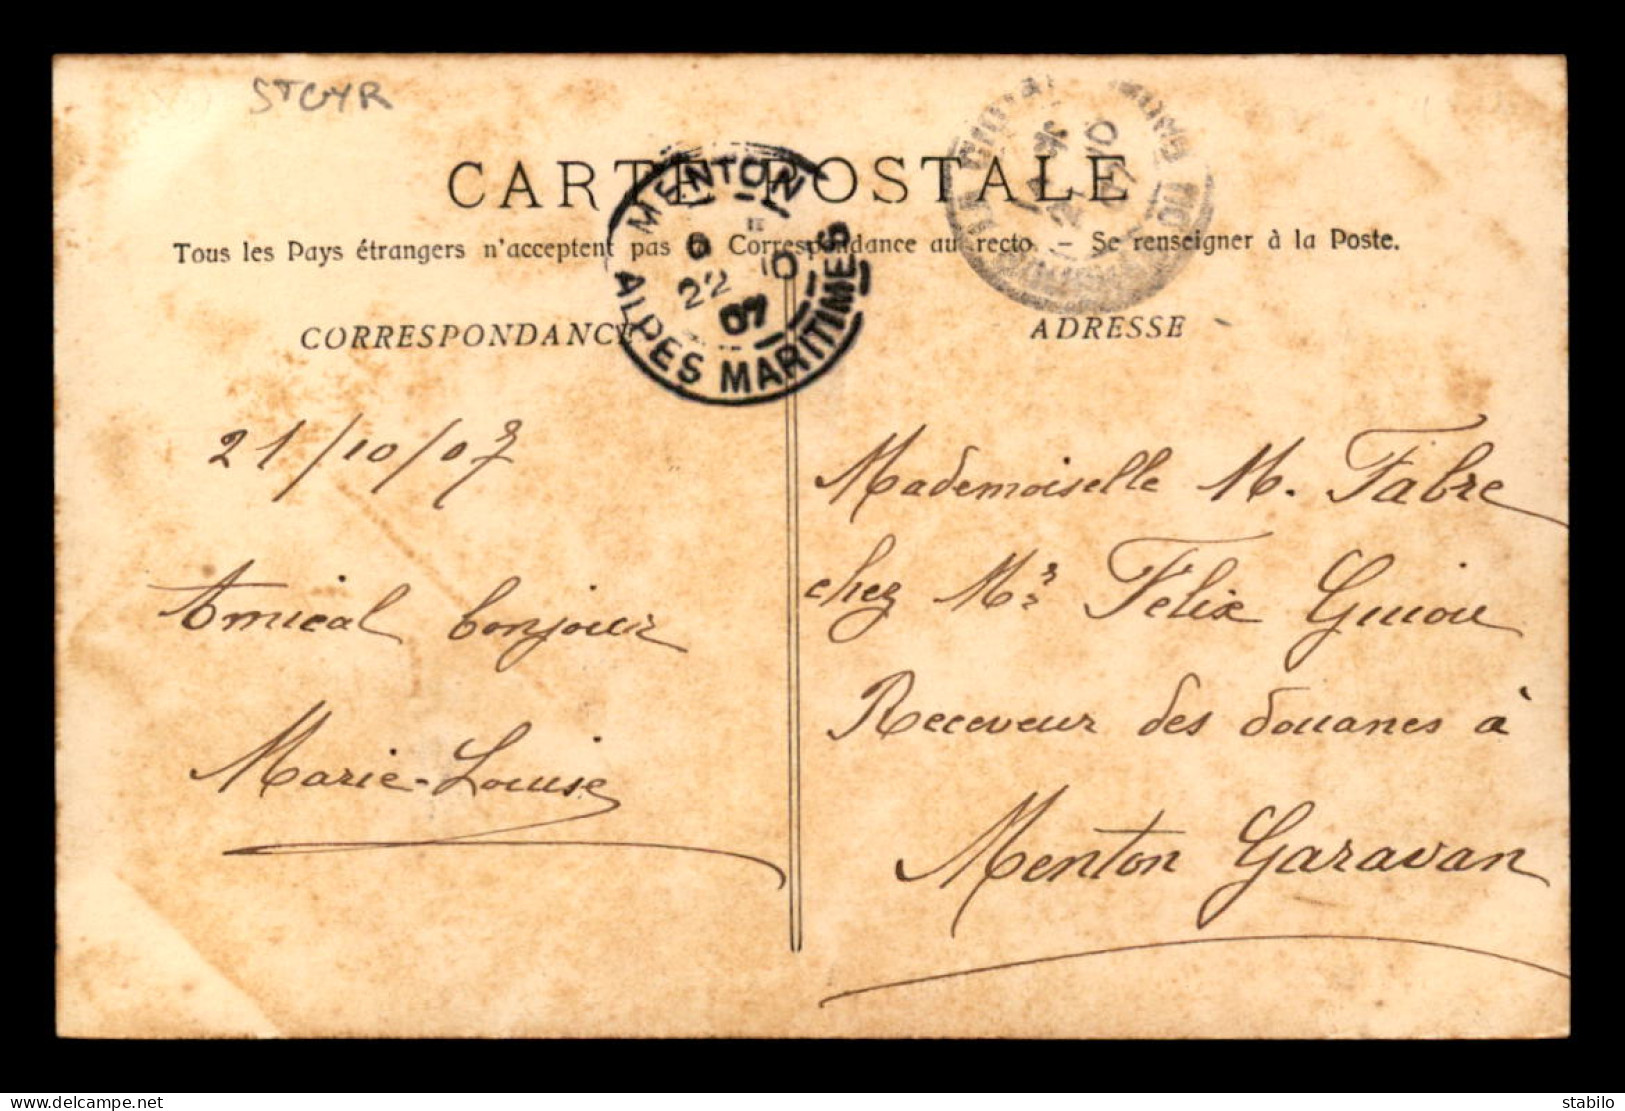 ST CYR
CARTE POSTALE
Tous les Pays étrangers n'acceptent pas la Correspondance au recto. – Se renseigner à la Poste.
MENTON
6
22 10
07
ALPES MARITIMES
CORRESPONDANCE
ADRESSE
21/10/07
Amical bonjour
Marie-Louise
Mademoiselle M. Fabre
chez Mr Félix Guiou
Receveur des douanes à
Menton Garavan
www.delcampe.net
stabilo